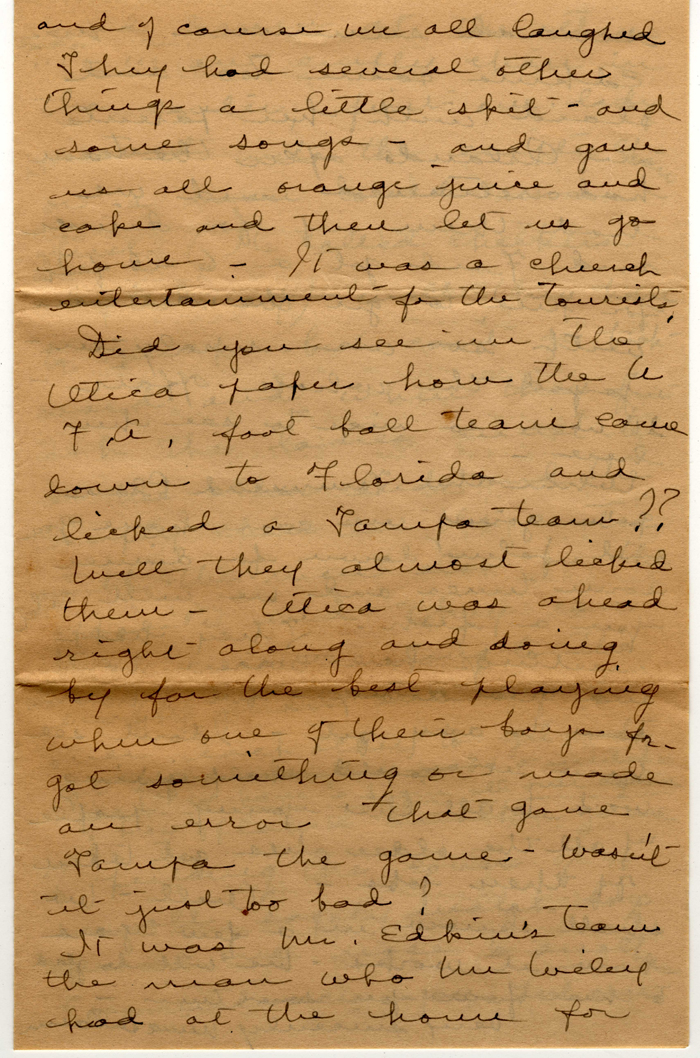 and of course we all laughed
They had several other
things a little skit - and
some songs - and gave
us all orange juice and
cake and then let us go
home - It was a church
entertainment for the Tourists.
Did you see in the
Utica paper how the U
F.A. foot ball team came
down to Florida and
licked a Tampa team??
Well they almost licked
them - Utica was ahead
right along and doing
by far the best playing
when one of their boys for-
got something or made
an error + that gave
Tampa the game - Wasn't
it just too bad?
It was Mr. Edkin's team
the man who Mr Wiley
had at the home for